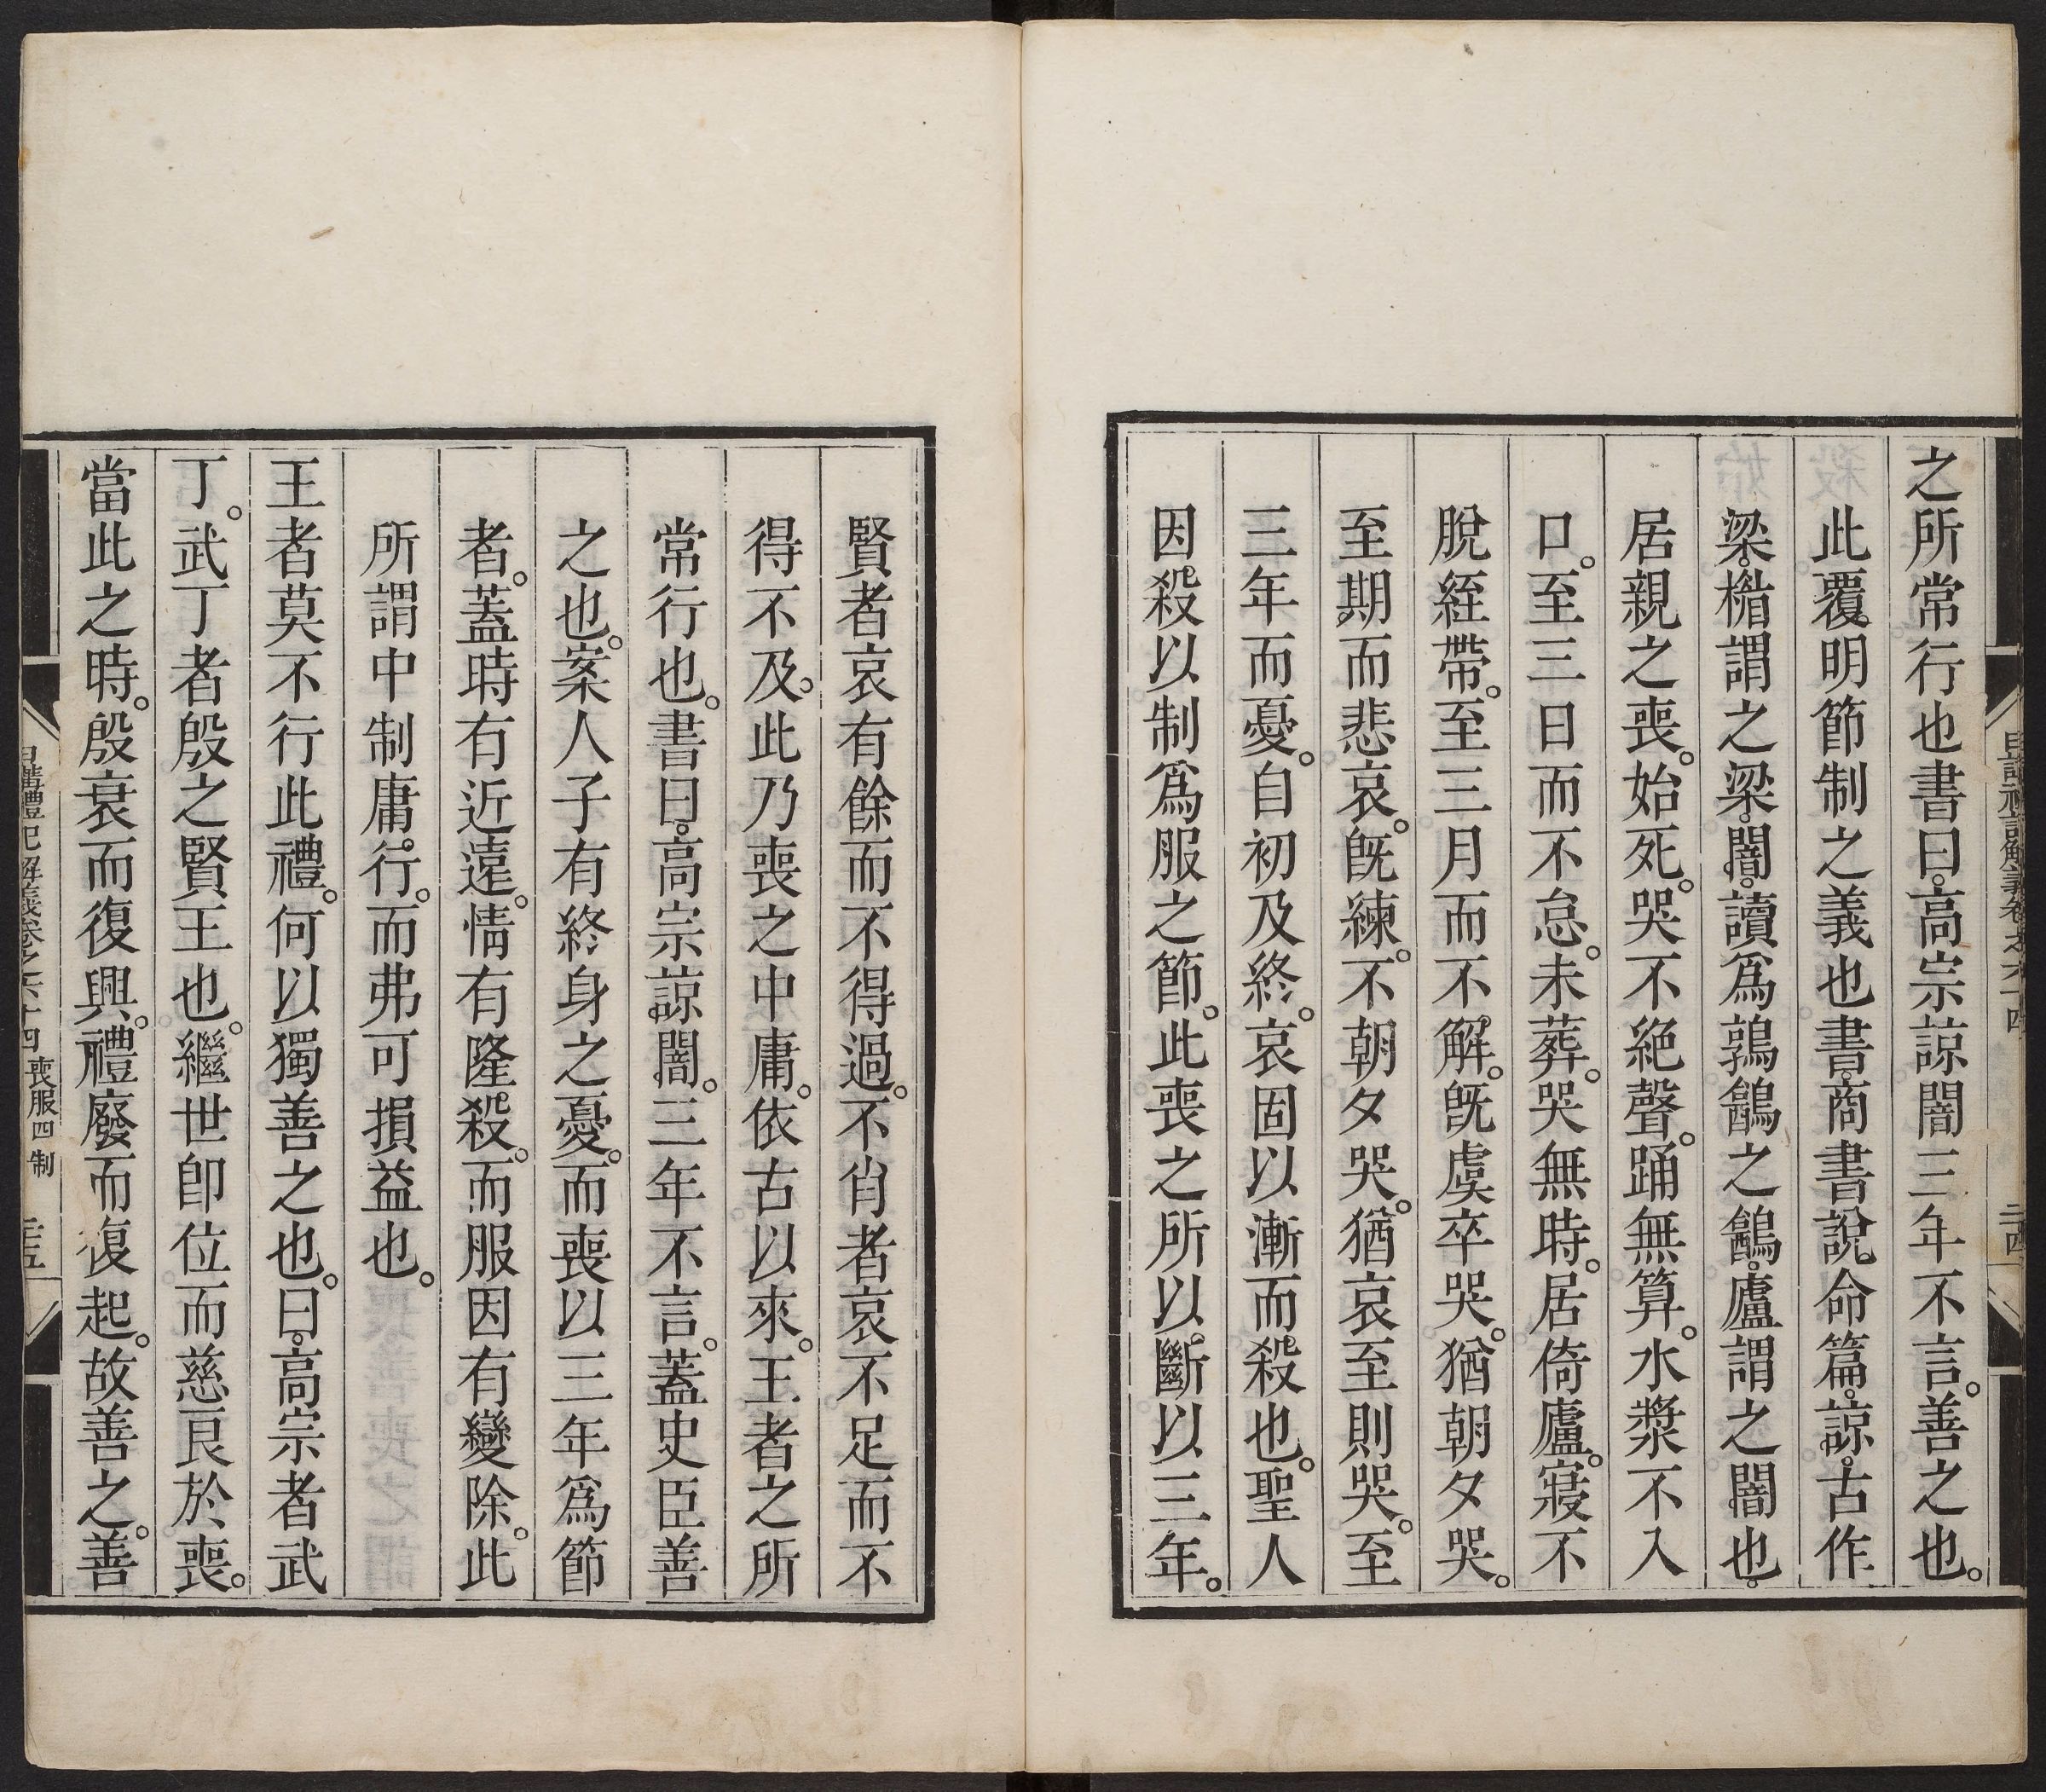 之所常行也書曰高宗諒闇三年不言。善之也。
此覆明節制之義也書。商書說命篇。諒。古作
梁。楣謂之梁。闇。讀爲鶉鷂之鷂。廬謂之闇也。
居親之喪。始死。哭不絶聲。踊無算。水漿不入
口。至三日而不怠。未葬。哭無時。居倚廬。寢不
脫絰帶。至三月而不解。旣虞卒哭。猶朝夕哭。
至期而悲哀。旣練。不朝夕哭。猶哀至則哭。至
三年而憂。自初及終。哀固以漸而殺也。聖人
因殺以制爲服之節。此喪之所以斷以三年。
賢者哀有餘而不得過。不肖者哀不足而不
得不及。此乃喪之中庸。依古以來。王者之所
常行也。書曰。高宗諒闇。三年不言。蓋史臣善
之也。案人子有終身之憂。而喪以三年爲節
者。蓋時有近遠。情有隆殺。而服因有變除。此
所謂中制庸行。而弗可損益也。
王者莫不行此禮。何以獨善之也。曰。高宗者武
丁。武丁者殷之賢王也。繼世卽位而慈良於喪。
當此之時。殷衰而復興。禮廢而復起。故善之。善
日講禮記解義卷之六十四 喪服四制 三五